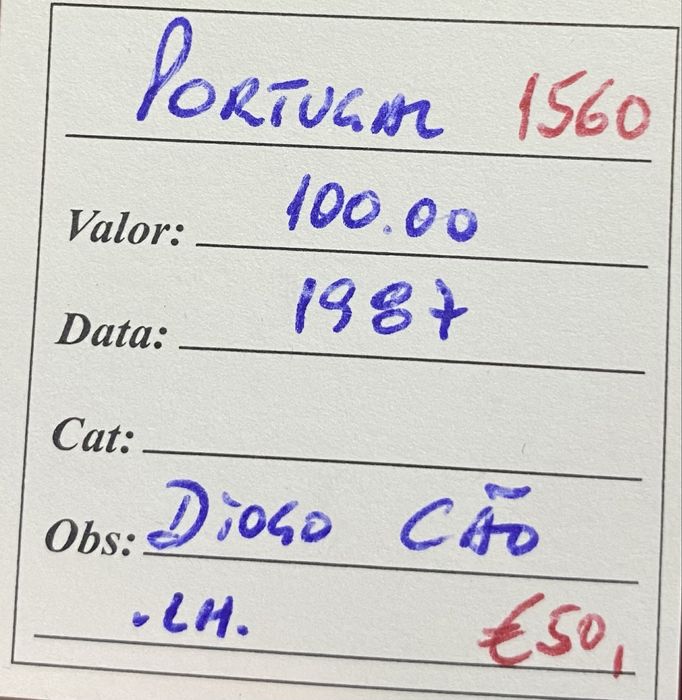 PORTUGAL 1560
Valor: 100.00
Data: 1987
Cat:
Obs: DiOGO CÃO
.LH. €50,